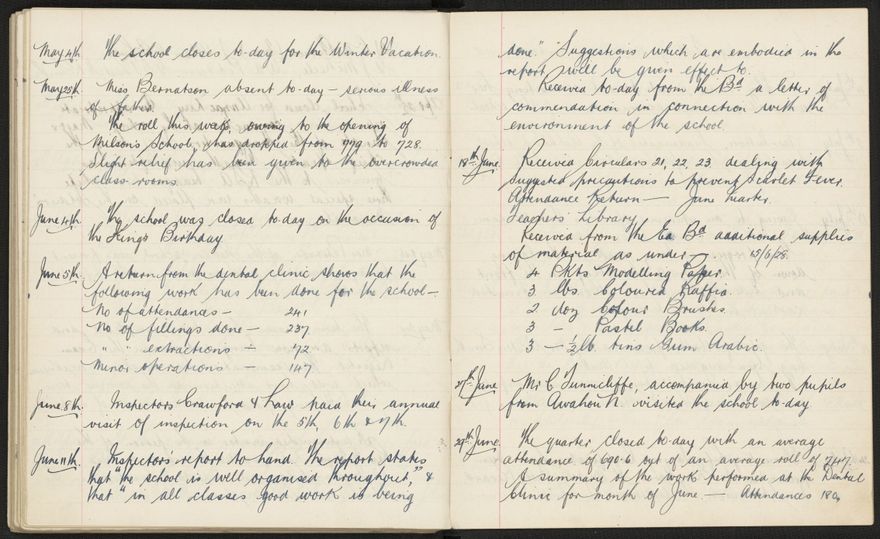 May 4th. The school closes to-day for the Winter Vacation.
May 25th. Miss Bernatson absent to-day — serious illness
of father.
The roll this week, owing to the opening of
Nelson's School, has dropped from 779 to 728.
Slight relief has been given to the overcrowded
class-rooms.
June 4th. The school was closed to-day on the occasion of
the King's Birthday
June 5th. A return from the dental clinic shows that the
following work has been done for the school—
No of attendances — 241
No of fillings done — 237
" " extractions — 72
Minor operations — 147
June 8th. Inspectors Crawford & Law paid their annual
visit of inspection on the 5th, 6th & 7th.
June 11th. Inspectors' report to hand. The report states
that "the school is well organised throughout," &
that "in all classes good work is being
done." Suggestions which are embodied in the
report will be given effect to.
Received to-day from the Bd a letter of
commendation in connection with the
environment of the school.
18th June. Received Circulars 21, 22, 23 dealing with
Suggested precautions to prevent Scarlet Fever.
Attendance Return — June Quarter.
Teachers' Library
Received from the Ed Bd additional supplies
of material as under — 15/6/28.
4 Pkts Modelling Paper.
3 lbs. Coloured Raffia.
2 doz Colour Brushes.
3 — Pastel Books.
3 — ½ lb. tins Gum Arabic.
27th June. Mr C Tunnicliffe, accompanied by two pupils
from Awahou N. visited the school to-day
29th June. The quarter closed to-day with an average
attendance of 690.6 out of an average roll of 747.
A summary of the work performed at the Dental
Clinic for month of June — Attendances